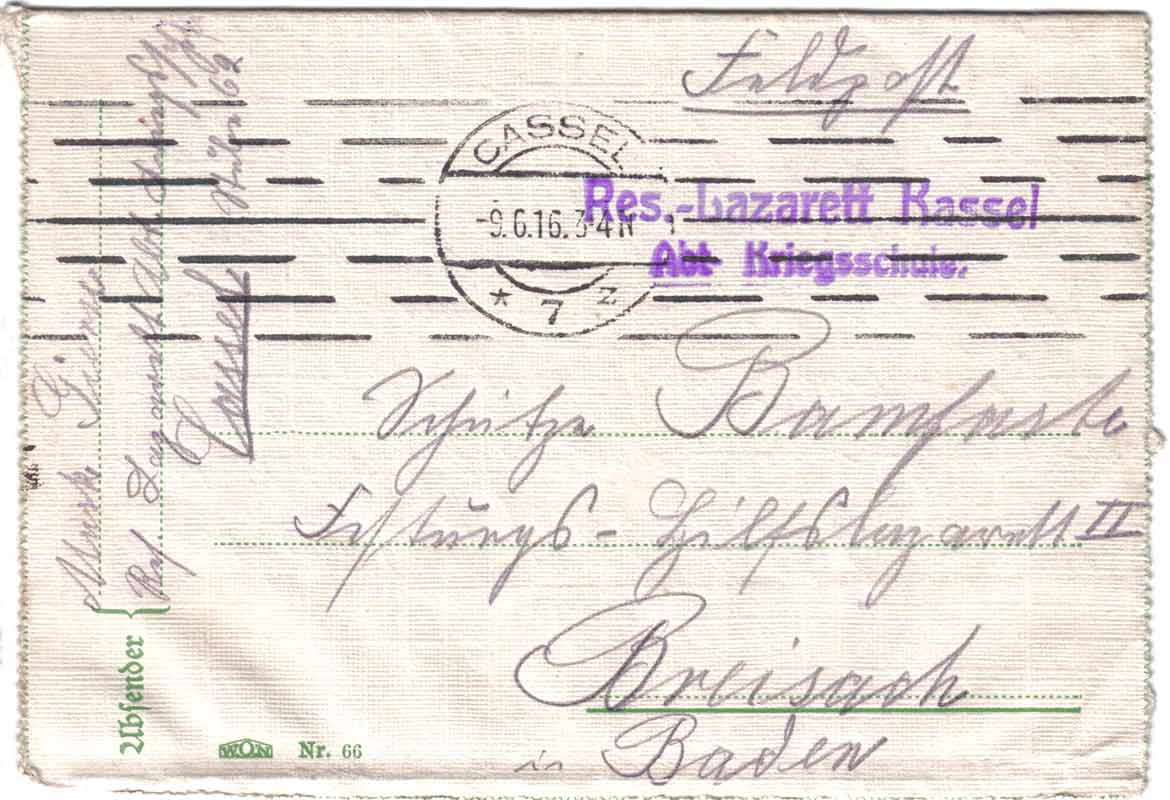 Feldpost
CASSEL
-9.6.16. 3-4 N
* 7 z
Res.-Lazarett Kassel
Abt Kriegsschule.
Schütze
Festungs-Hilfslazarett II
Breisach
in Baden
Absender
Res Lazarett Abt
Stube 62
Cassel
WON Nr. 66